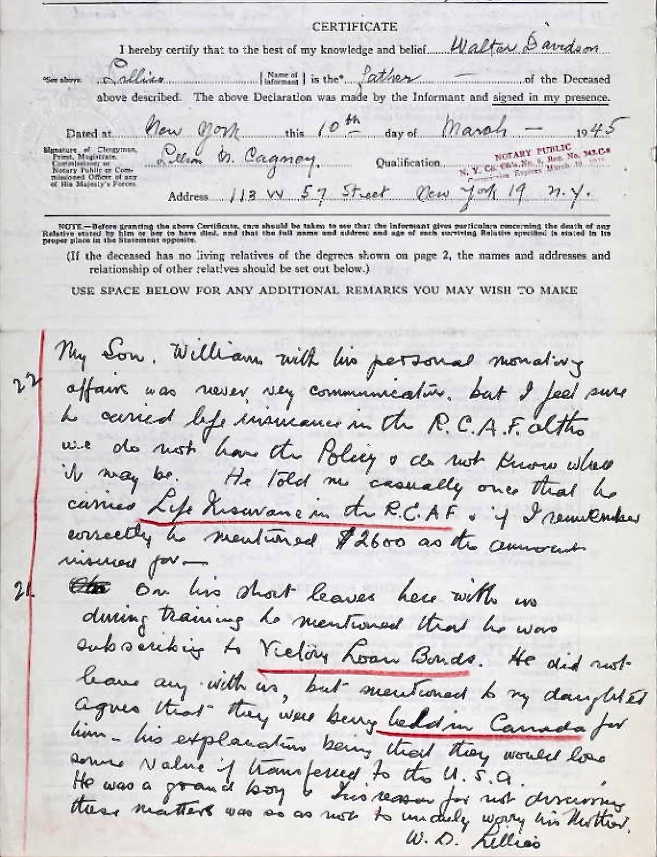 CERTIFICATE
I hereby certify that to the best of my knowledge and belief Walter Davidson
*See above. Lillies {Name of Informant} is the* father — of the Deceased
above described. The above Declaration was made by the Informant and signed in my presence.
Dated at New York this 10th day of March — 1945
Signature of Clergyman, Priest, Magistrate, Commissioner or Notary Public or Commissioned Officer of any of His Majesty's Forces.
Lillian M. Cagney. Qualification NOTARY PUBLIC
N. Y. Co. Clk's No. Reg. No.
Address 113 W 57 Street New York 19 N.Y.
NOTE.—Before granting the above Certificate, care should be taken to see that the informant gives particulars concerning the death of any
Relative stated by him or her to have died, and that the full name and address and age of each surviving Relative specified is stated in its
proper place in the Statement opposite.
(If the deceased has no living relatives of the degrees shown on page 2, the names and addresses and
relationship of other relatives should be set out below.)
USE SPACE BELOW FOR ANY ADDITIONAL REMARKS YOU MAY WISH TO MAKE
My Son. William with his personal monatary
22 affairs was never very communicative, but I feel sure
he carried life insurance in the R.C.A.F. altho
we do not have the Policy & do not know where
it may be. He told me casually once that he
carried Life Insurance in the R.C.A.F. & if I remember
correctly he mentioned $2600 as the amount
insured for —
21 On his short leaves here with us
during training he mentioned that he was
subscribing to Victory Loan Bonds. He did not
leave any with us, but mentioned to my daughter
Agnes that they were being held in Canada for
him — his explanation being that they would lose
some value if transferred to the U.S.A.
He was a grand boy & his reason for not discussing
these matters was so as not to unduly worry his Mother.
W. D. Lillies